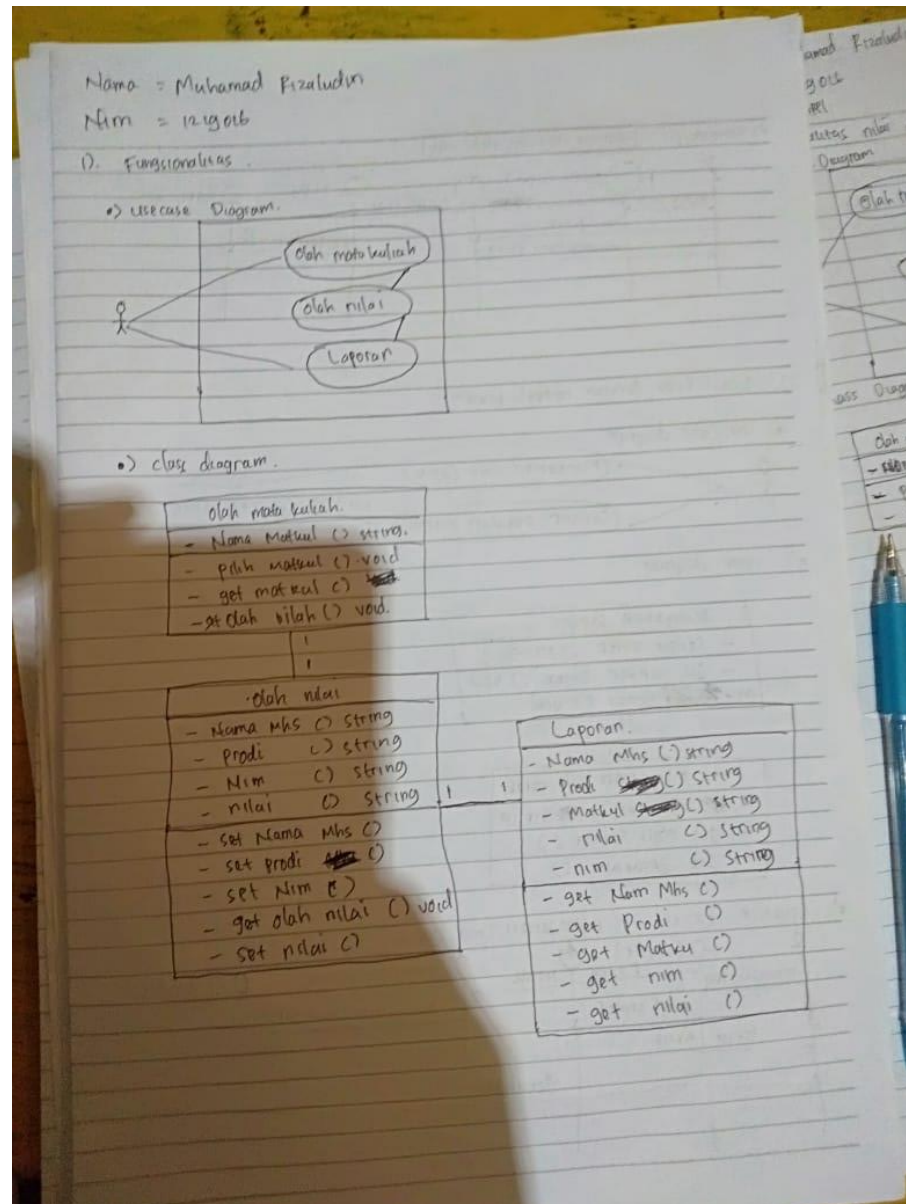 Nama = Muhamad Rizaludin
Nim = 1219016
1). Fungsionalitas.
•) usecase Diagram.
Olah mata kuliah
Olah nilai
Laporan
•) class diagram.
olah mata kuliah.
- Nama Matkul () string.
- pilih matkul () void
- get matkul ()
- olah nilah () void.
1
1
olah nilai
- Nama Mhs () string
- Prodi () string
- Nim () string
- nilai () string
- set Nama Mhs ()
- set prodi ()
- set Nim ()
- get olah nilai () void
- set nilai ()
1 1
Laporan.
- Nama Mhs () string
- Prodi () string
- Matkul () string
- nilai () string
- nim () string
- get Nam Mhs ()
- get Prodi ()
- get Matku ()
- get nim ()
- get nilai ()
nilai
Diagram
Olah
ass Diag
Olah